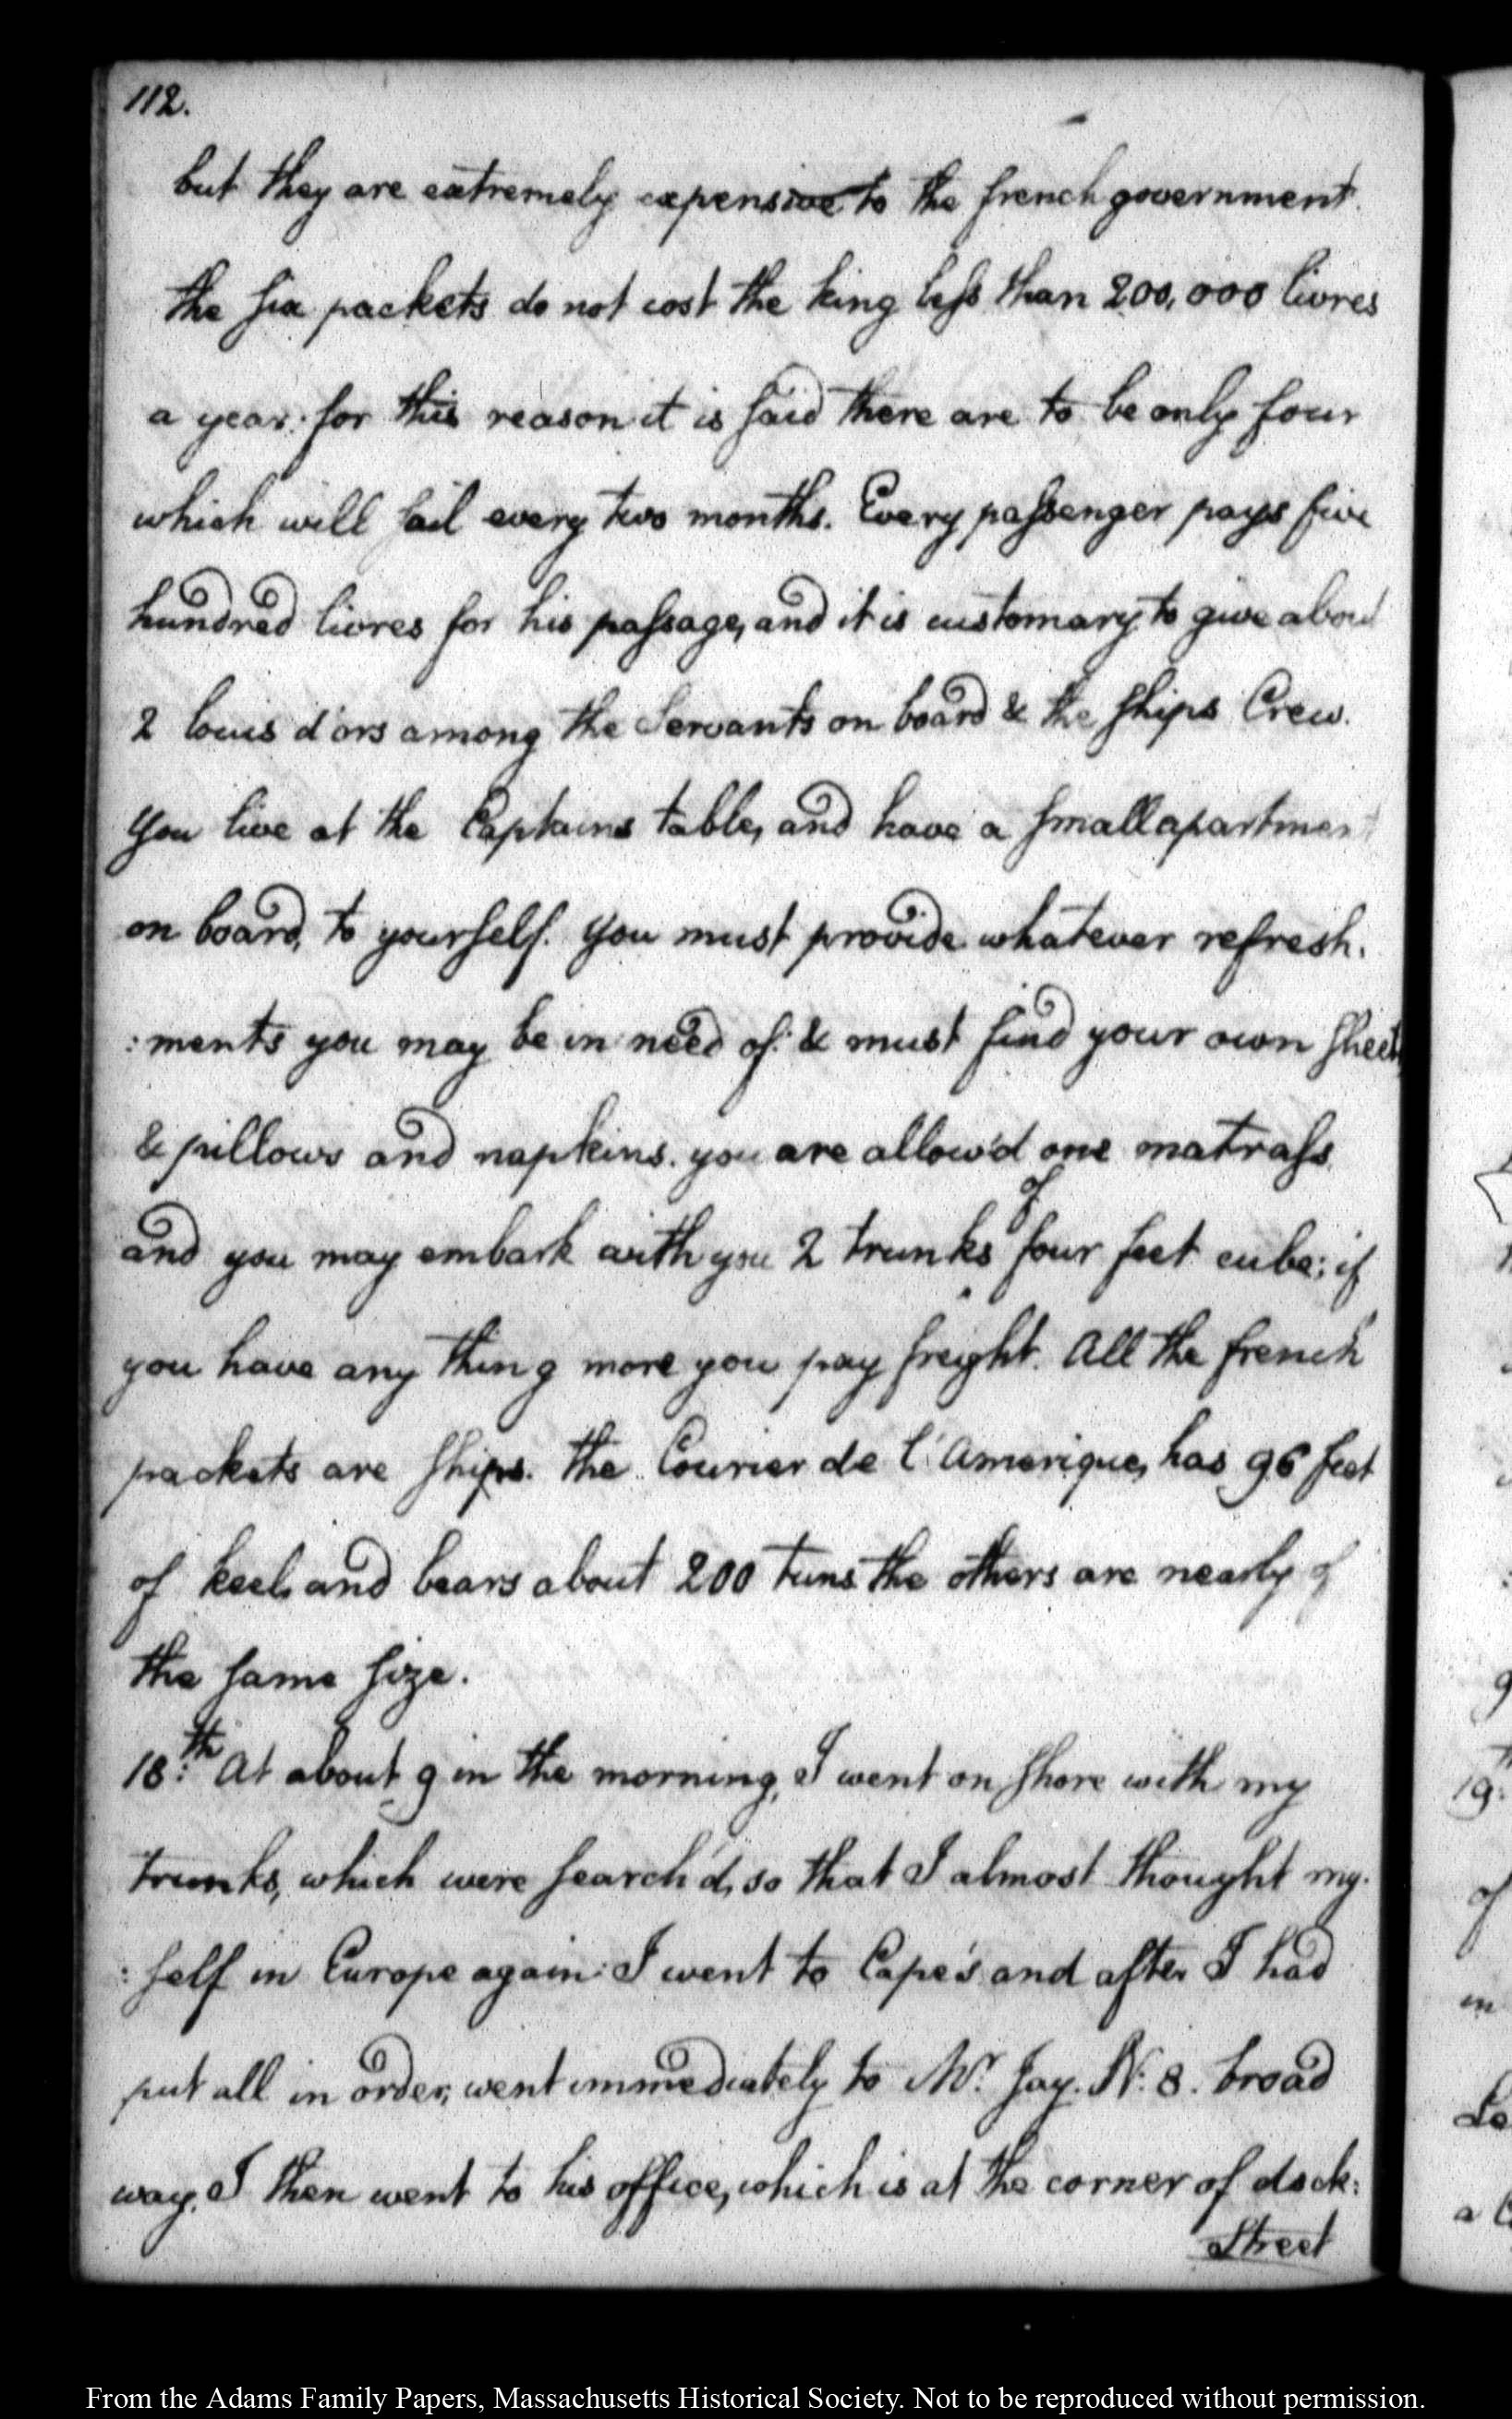 112.
but they are extremely expensive to the french government.
the six packets do not cost the king less than 200,000 livres
a year: for this reason it is said there are to be only four
which will sail every two months. Every passenger pays five
hundred livres for his passage, and it is customary to give about
2 louis d'ors among the Servants on board & the ships Crew.
You live at the Captains table, and have a small apartment
on board, to yourself. You must provide whatever refresh.
:ments you may be in need of: & must find your own sheets
& pillows and napkins. you are allow'd one matrass,
and you may embark with you 2 trunks of four feet cube; if
you have any thing more you pay freight. All the french
packets are ships. the Courier de l'Amerique, has 96 feet
of keel, and bears about 200 tuns the others are nearly of
the same size.
18:th At about 9 in the morning, I went on shore with my
trunks, which were search'd, so that I almost thought my.
:self in Europe again: I went to Cape's and after I had
put all in order, went immediately to Mr. Jay. N: 8. broad
way. I then went to his office, which is at the corner of dock:
Street
19:
of
in
a
From the Adams Family Papers, Massachusetts Historical Society. Not to be reproduced without permission.